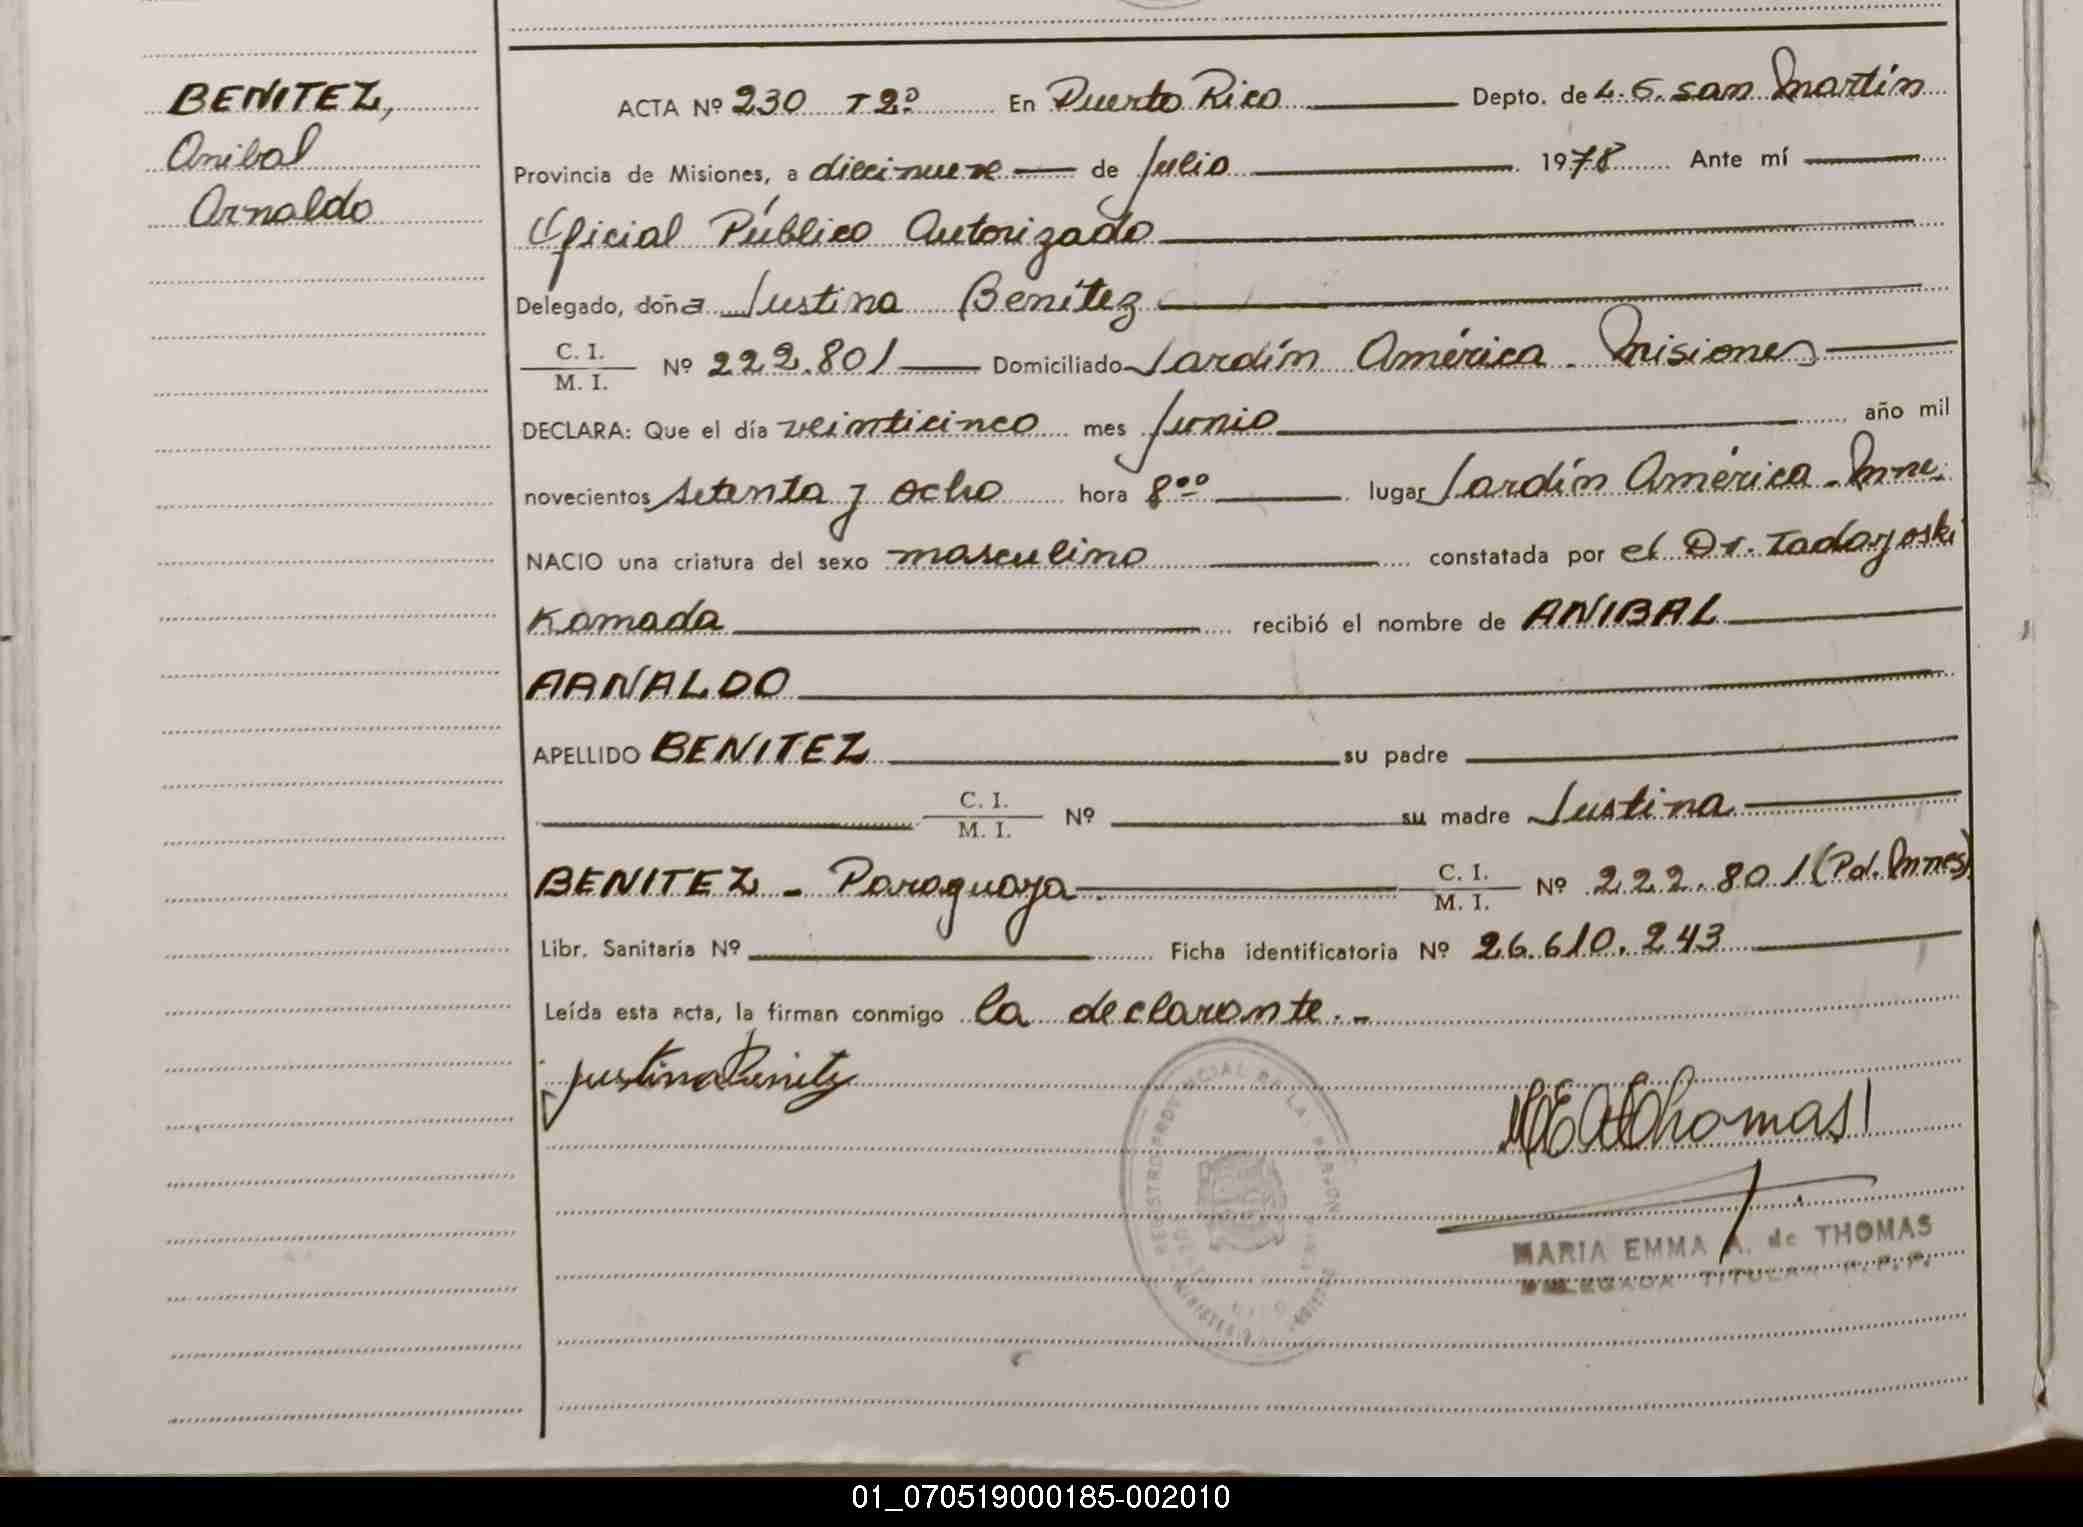 BENITEZ,
Anibal
Arnaldo
ACTA Nº 230 T 2º En Puerto Rico Depto. de L. G. san Martín
Provincia de Misiones, a diecinueve de Julio 1978 Ante mí
Oficial Público Autorizado
Delegado, doña Justina Benítez
C. I. / M. I. Nº 222.801 Domiciliado Jardín América - Misiones
DECLARA: Que el día veinticinco mes Junio año mil
novecientos setenta y ocho hora 8ºº lugar Jardín América - Mnes.
NACIO una criatura del sexo masculino constatada por el Dr. Tadayoski
Kamada recibió el nombre de ANIBAL
ARNALDO
APELLIDO BENITEZ su padre
C. I. / M. I. Nº su madre Justina
BENITEZ - Paraguaya C. I. / M. I. Nº 222.801 (Pol. Mnes)
Libr. Sanitaria Nº Ficha identificatoria Nº 26.610.243
Leída esta acta, la firman conmigo la declarante.-
Justina Benitez
REGISTRO PROVINCIAL DE LAS PERSONAS
M E A de Thomas
MARIA EMMA A. de THOMAS
DELEGADA TITULAR R.P.P.
01_070519000185-002010